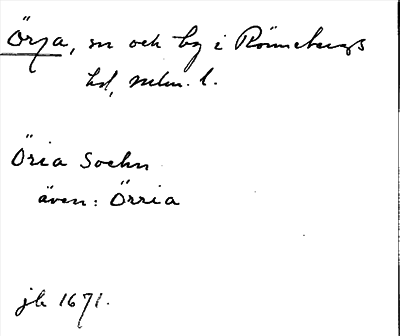 Örja, sn och by i Rönnebergs
hd, Mlm. l.
Öria Soehn
även: Örria
jb 1671.